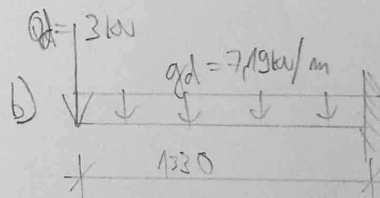 Qd= 3kN
gd=7,19kN/m
b)
1330